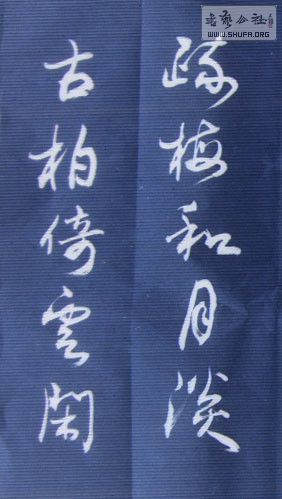 书艺公社
WWW.SHUFA.ORG
疏梅和月淡
古柏倚雲閑